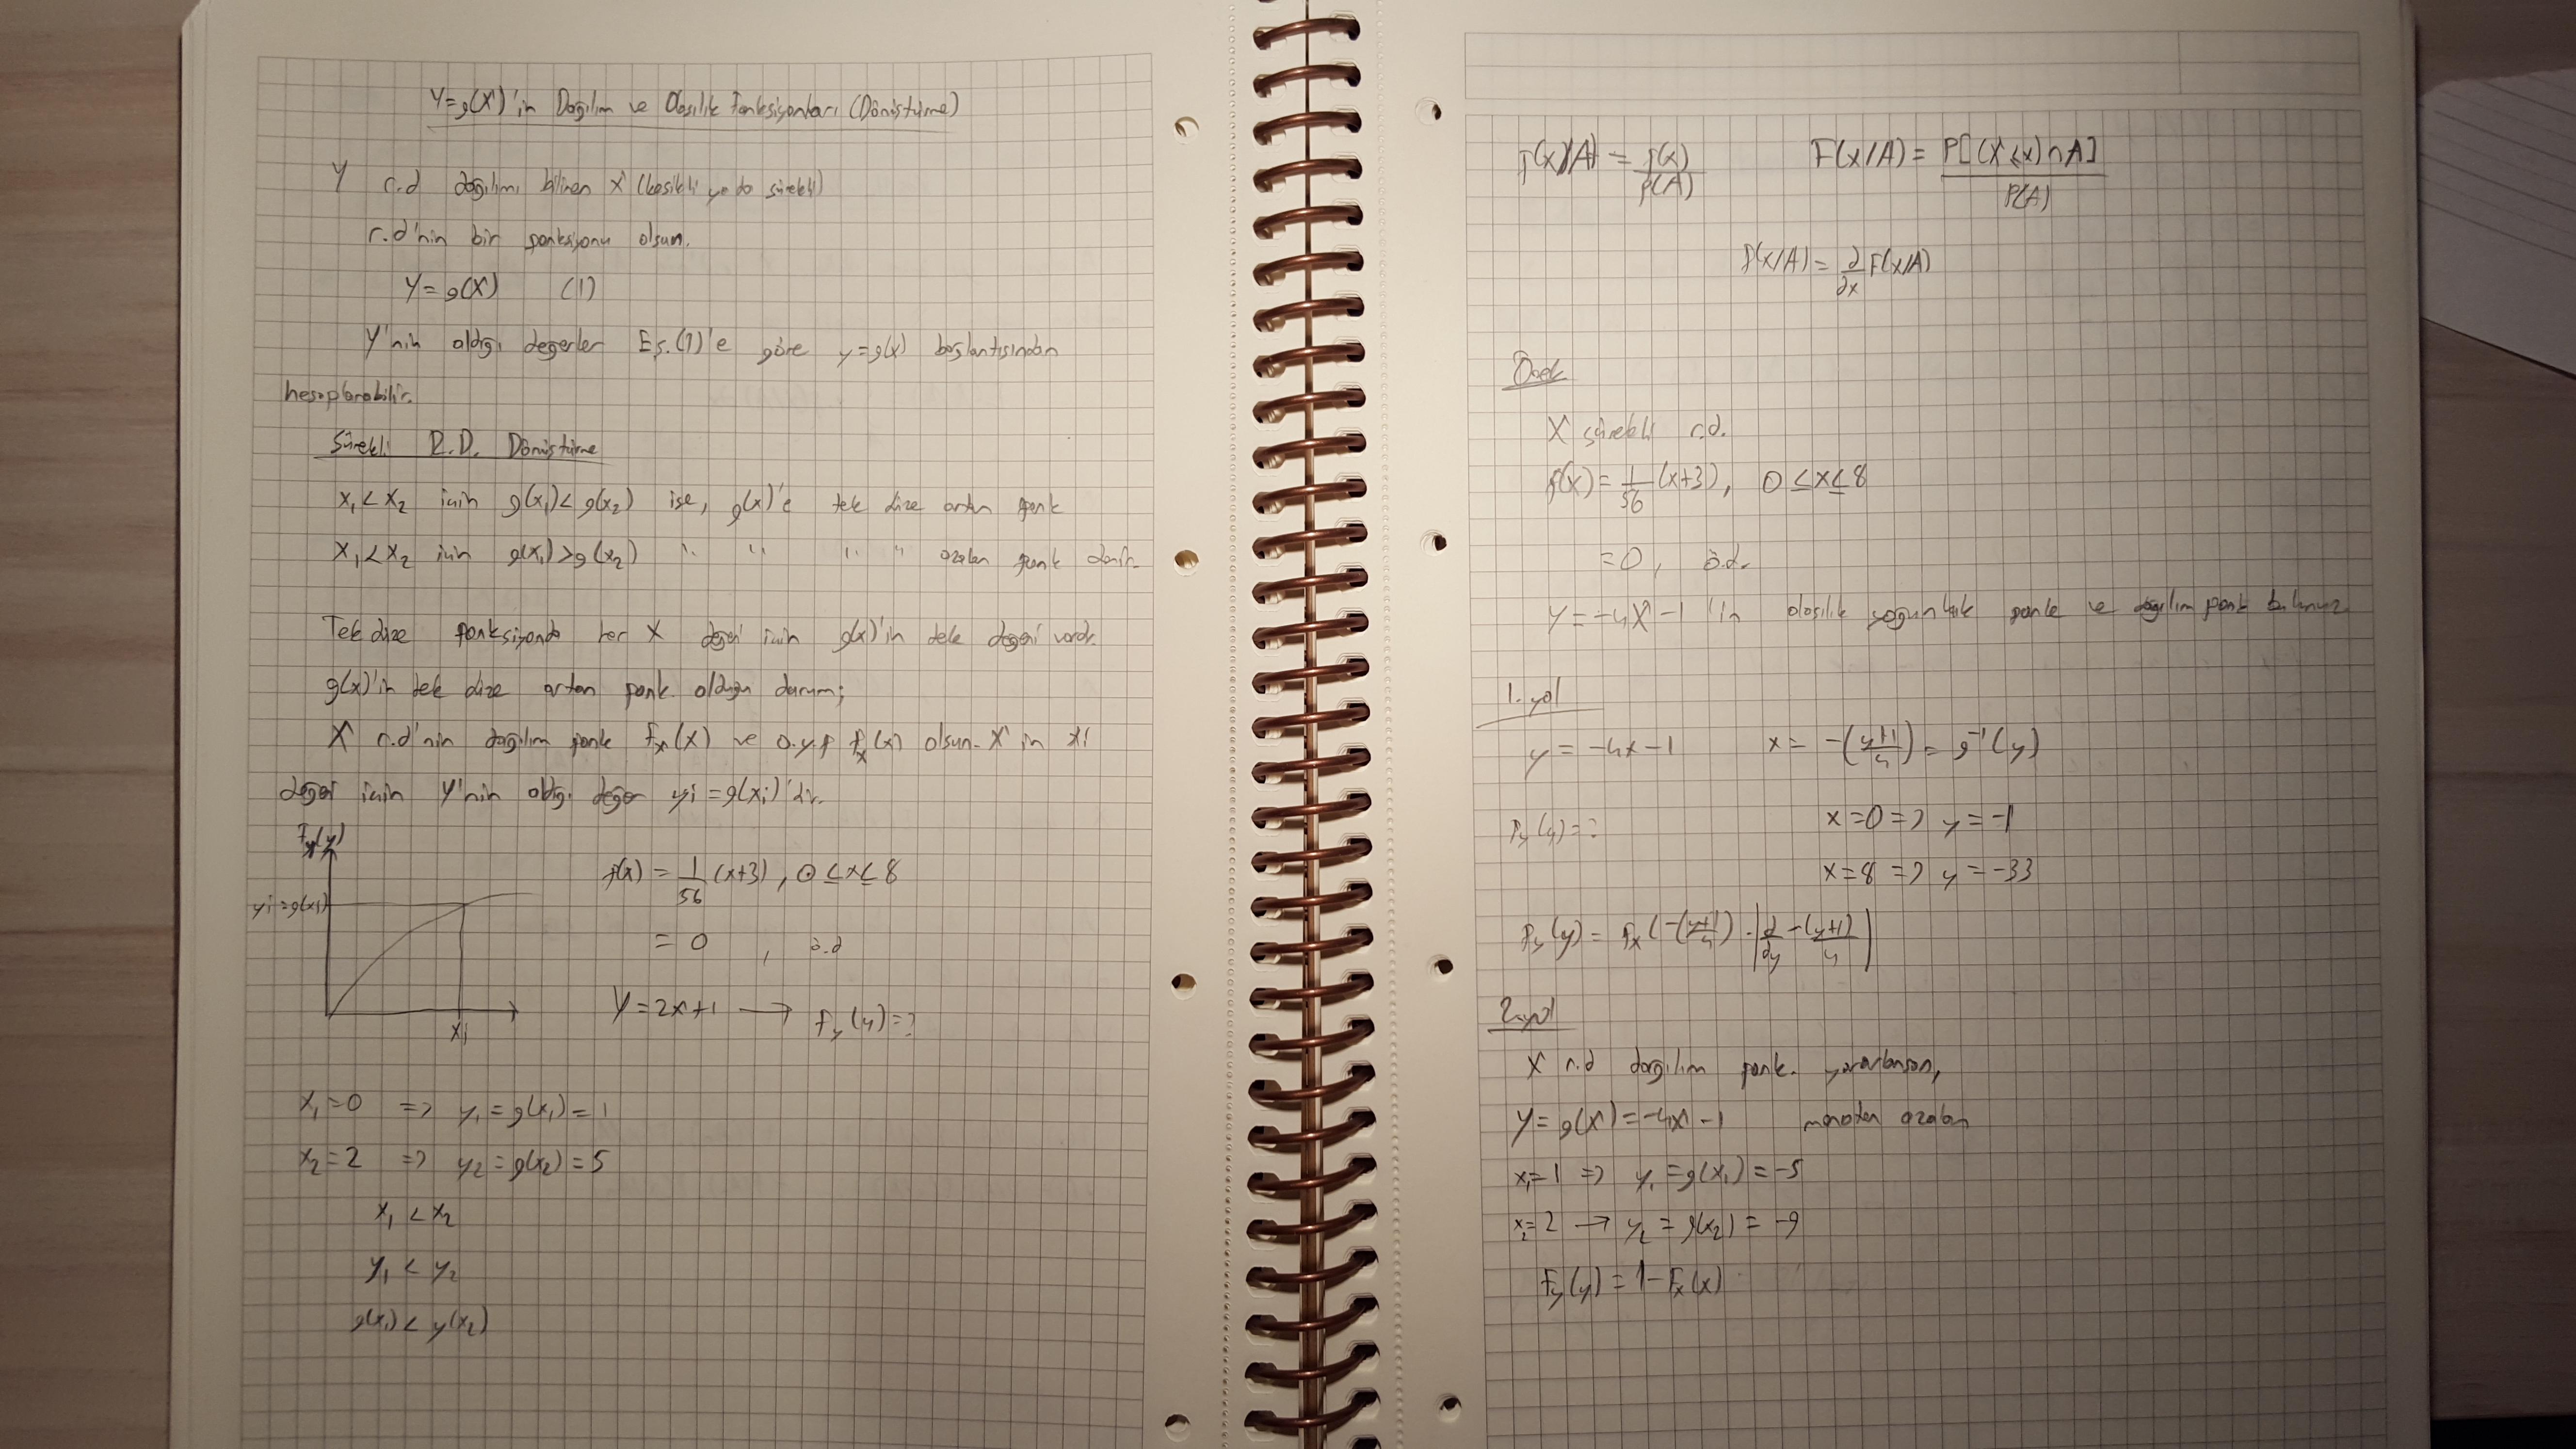 Y=g(X)'in Dağılım ve Olasılık Fonksiyonları (Dönüştürme)
Y r.d dağılımı bilinen X (kesikli ya da sürekli)
r.d'nin bir fonksiyonu olsun.
Y=g(X) (1)
Y'nin aldığı değerler Eş.(1)'e göre y=g(x) bağlantısından
hesaplanabilir.
Sürekli R.D. Dönüştürme
x₁<x₂ için g(x₁)<g(x₂) ise, g(x)'e tek düze artan fonk
x₁<x₂ için g(x₁)>g(x₂) " " " " azalan fonk denir.
Tek düze fonksiyonda her X değeri için g(x)'in tek değeri vardır.
g(x)'in tek düze artan fonk. olduğu durum;
X r.d'nin dağılım fonk Fₓ(X) ve o.y.f fₓ(x) olsun. X in xi
değeri için Y'nin aldığı değer yi=g(xi)'dir.
Fy(y)
yi=g(xi)
xi
f(x) = 1/56 (x+3), 0≤x≤8
= 0, ö.d
Y=2x+1 → fy(y)=?
x₁=0 => y₁=g(x₁)=1
x₂=2 => y₂=g(x₂)=5
x₁<x₂
y₁<y₂
g(x₁)<y(x₂)
f(x/A) = f(x)/P(A) F(x/A) = P[(X≤x)∩A]/P(A)
f(x/A) = ∂/∂x F(x/A)
Örnek
X sürekli r.d.
f(x) = 1/56 (x+3), 0≤x≤8
=0, ö.d.
Y=-4X-1 'in olasılık yoğunluk fonk ve dağılım fonk bulunuz.
1. yol
y = -4x-1 x = -((y+1)/4) = g⁻¹(y)
fy(y)=? x=0 => y=-1
x=8 => y=-33
fy(y) = fx(-((y+1)/4)) · |∂/∂y -(y+1)/4|
2. yol
X r.d dağılım fonk. yararlansan,
Y = g(X) = -4X-1 monoton azalan
x₁=1 => y₁=g(x₁)=-5
x₂=2 → y₂=g(x₂)=-9
Fy(y) = 1-Fx(x)